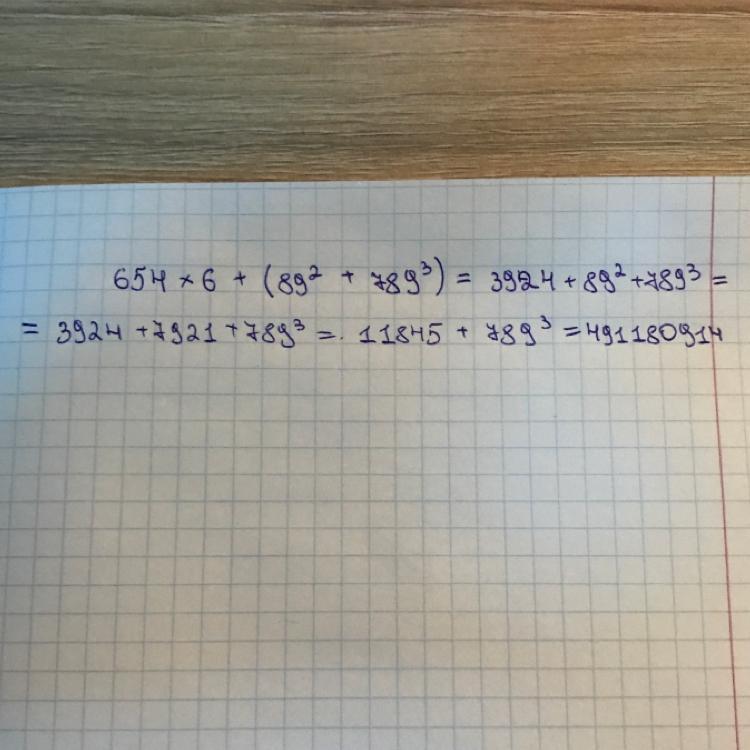 654 × 6 + (89² + 789³) = 3924 + 89² + 789³ =
= 3924 + 7921 + 789³ = 11845 + 789³ = 491180914